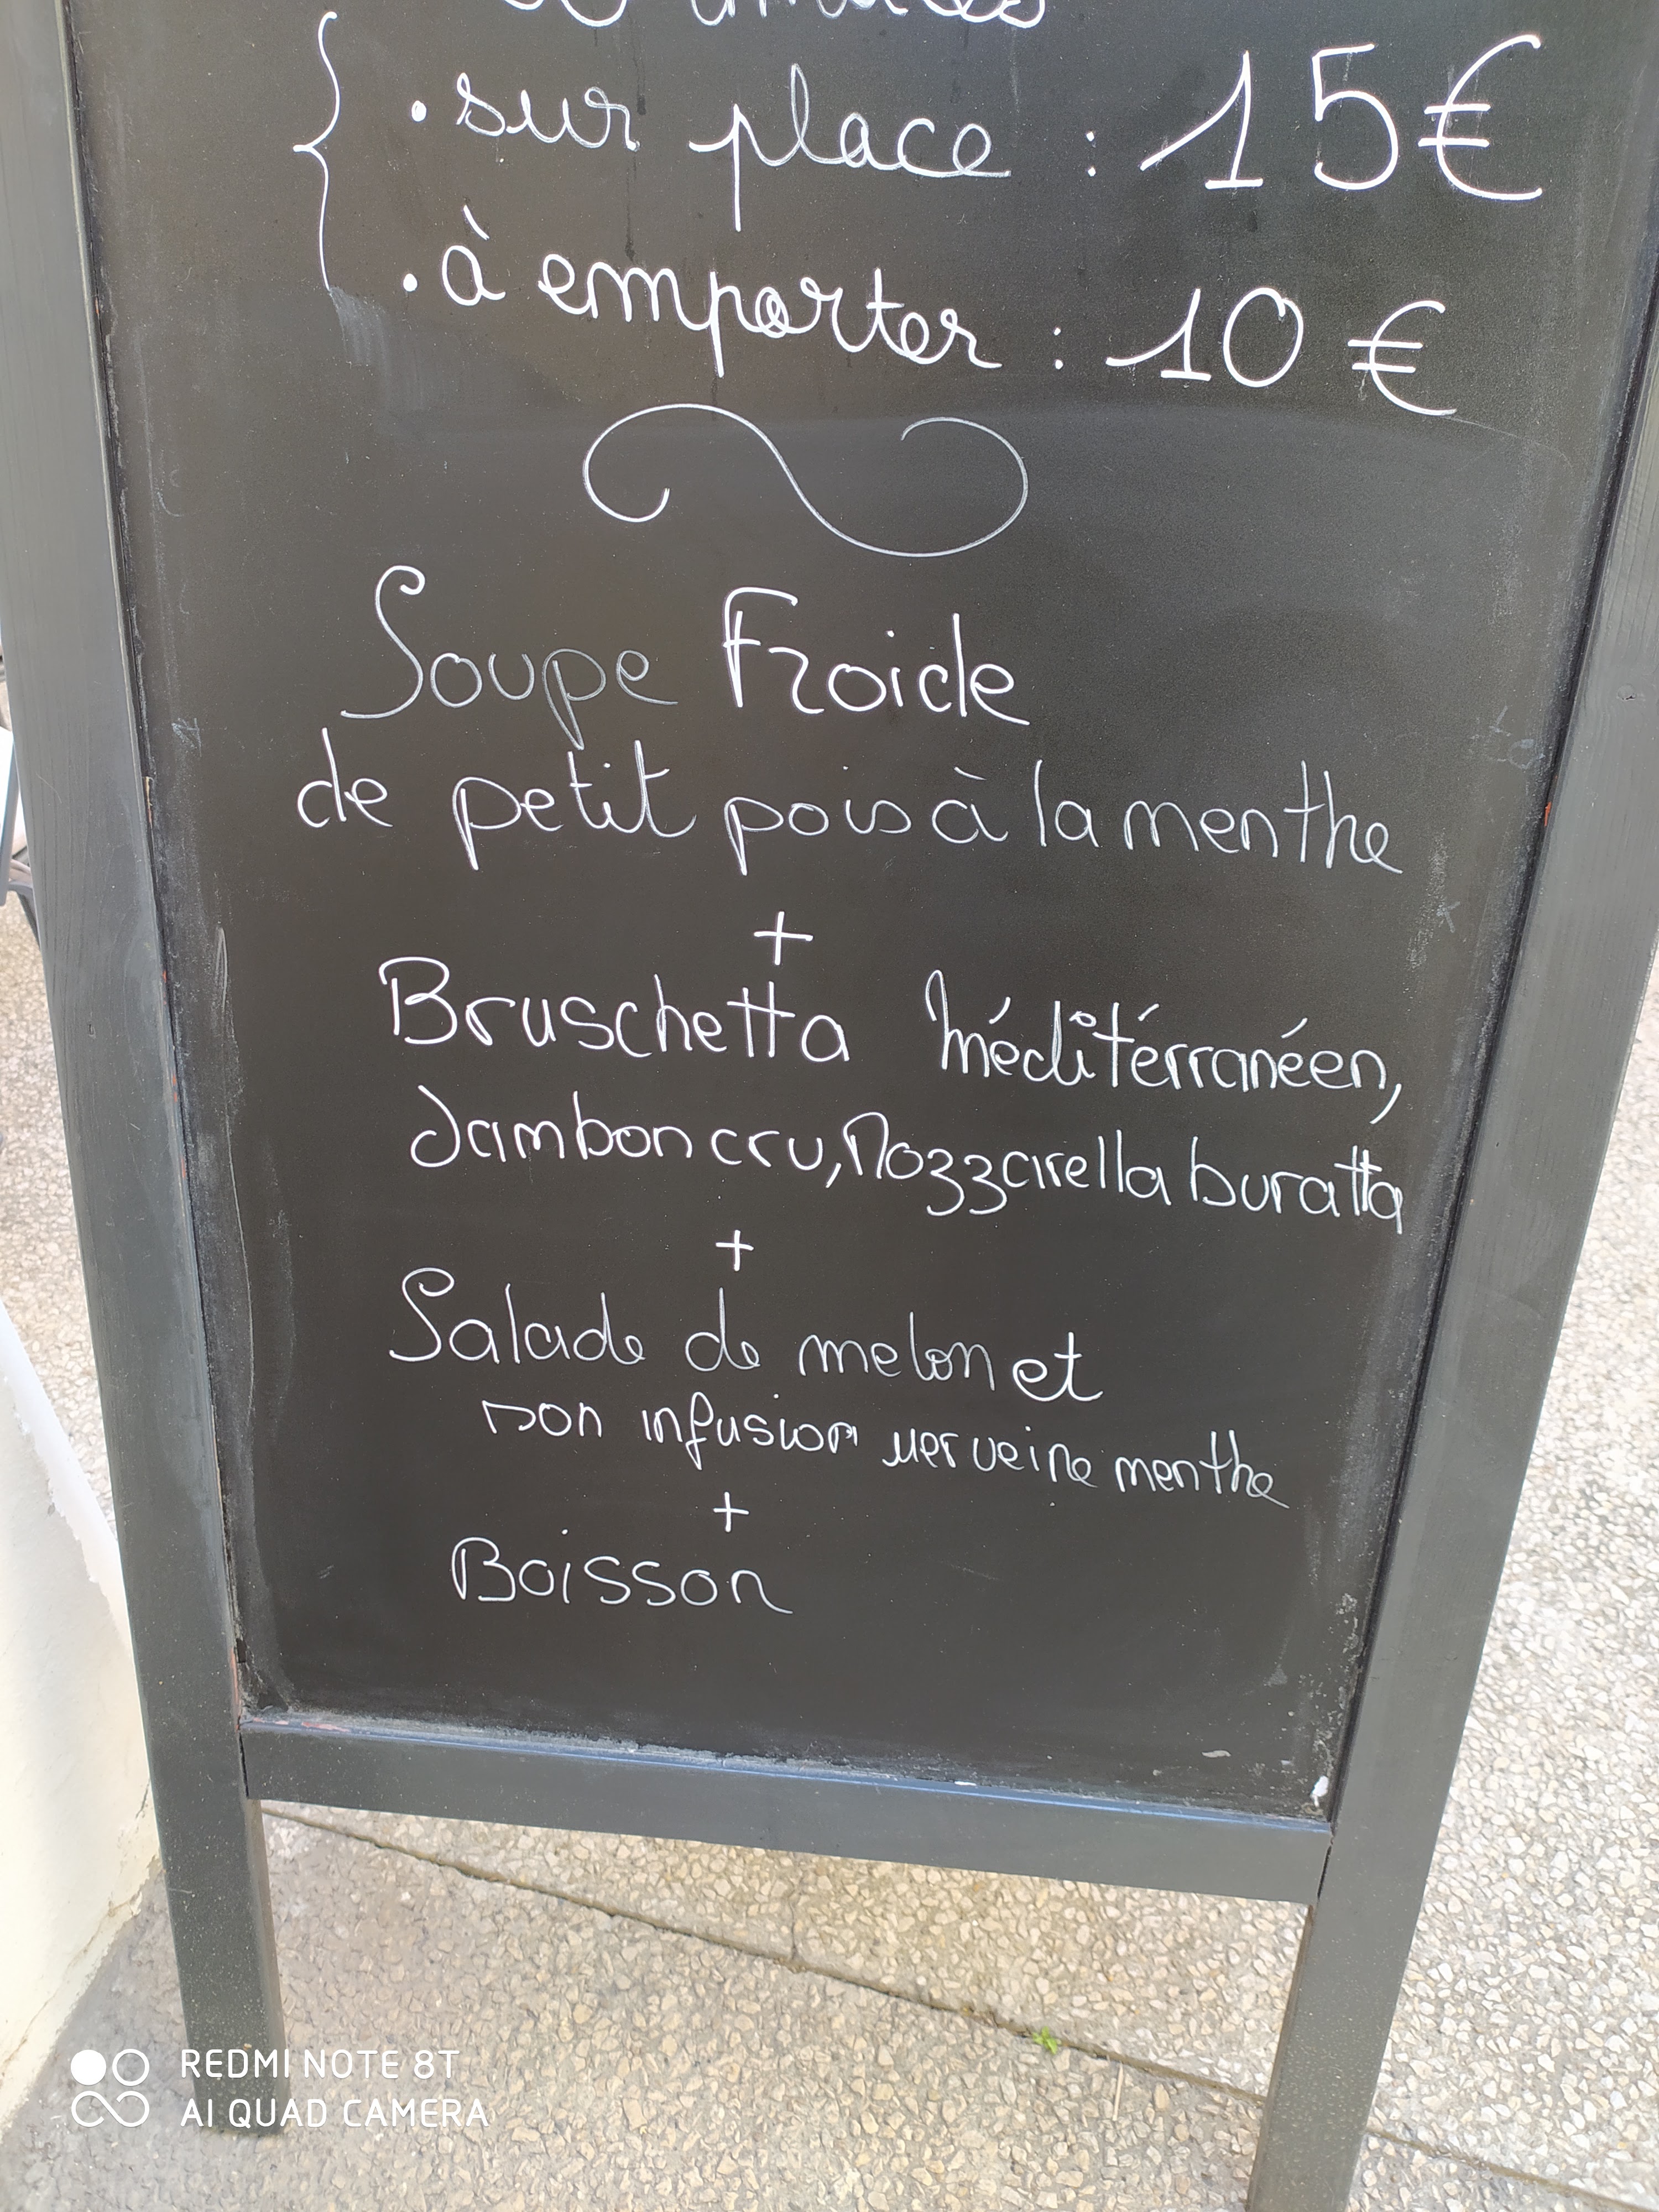 · sur place : 15€
· à emporter : 10 €
Soupe Froide
de petit pois à la menthe
+
Bruschetta Méditérranéen,
Jambon cru, Mozzarella buratta
+
Salade de melon et
son infusion verveine menthe
+
Boisson
REDMI NOTE 8T
AI QUAD CAMERA